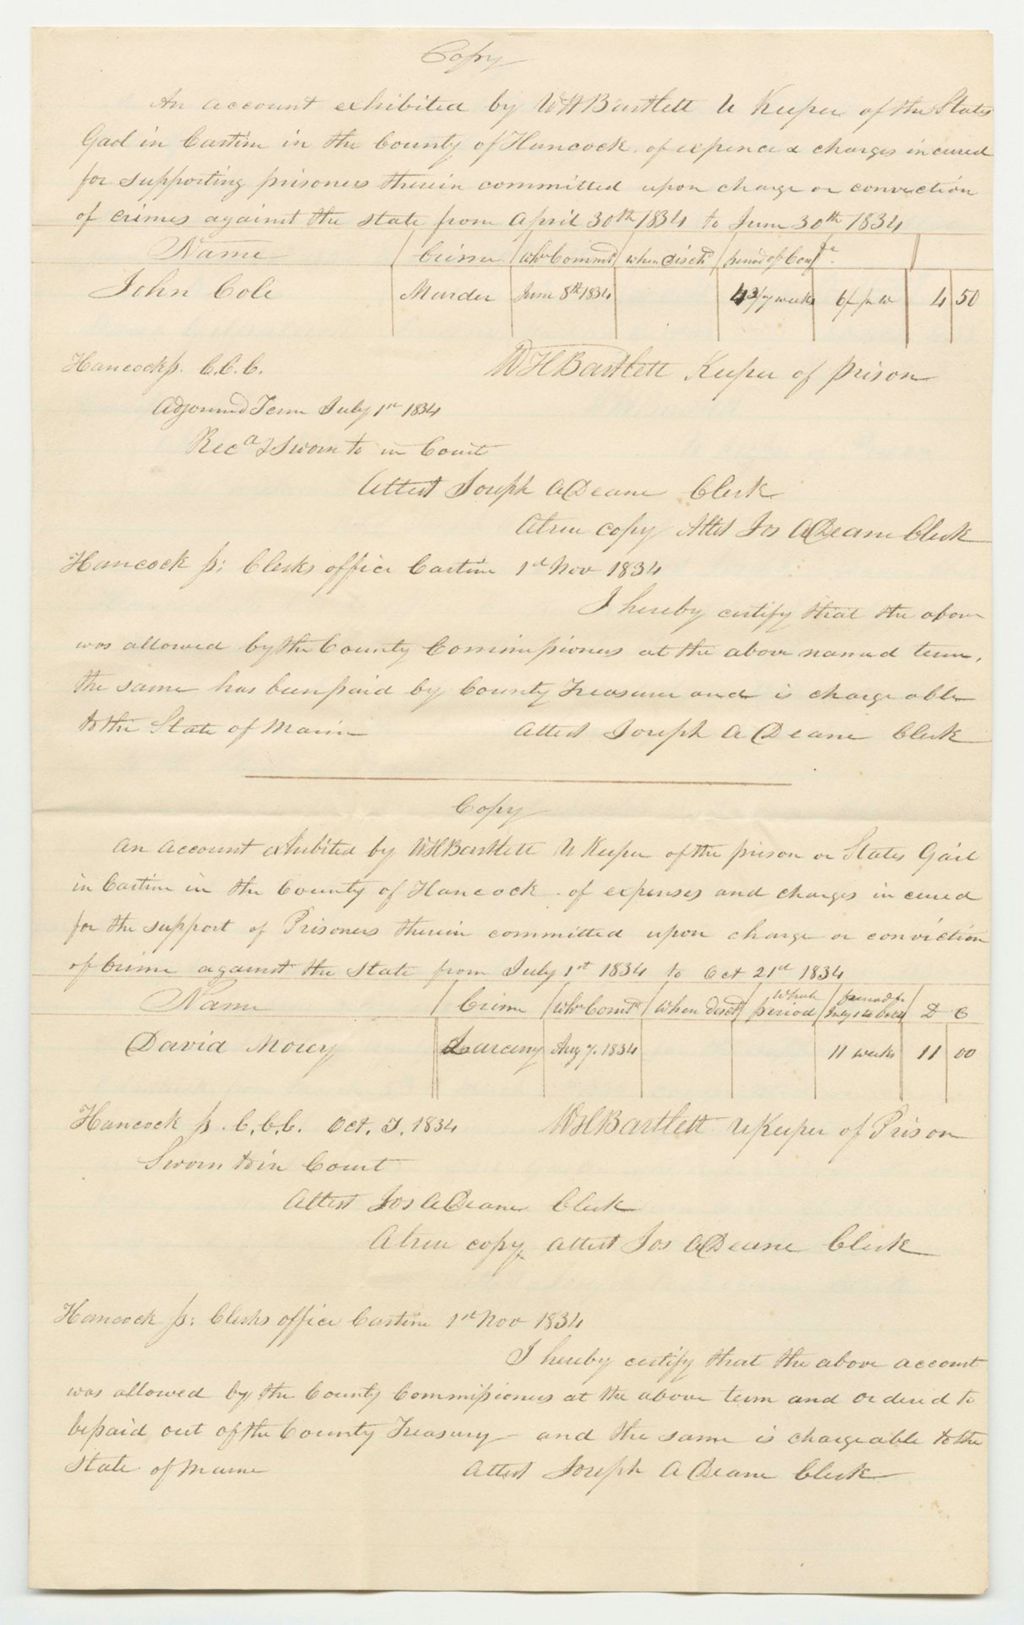 Copy
An account exhibited by WHBartlett U Keeper of the States
Gaol in Castine in the County of Hancock of expence & charges incured
for supporting prisoners therein committed upon charge or conviction
of crimes against the state from April 30th 1834 to June 30th 1834
Name Crime Whn Commtd when disctd period of Conft
John Cole Murder June 8th 1834 4 3/7 weeks 6/ pr w 4 50
Hancock ss. C.C.C. WHBartlett Keeper of prison
Adjourned Term July 1st 1834
Recd & Sworn to in Court
Attest Joseph A Deane Clerk
A true copy Attest Jos A Deane Clerk
Hancock ss: Clerks office Castine 1st Nov 1834
I hereby certify that the above
was allowed by the County Commissioners at the above named term,
the same has been paid by County Treasurer and is chargeable
to the State of Maine Attest Joseph A Deane Clerk
Copy
An account exhibited by WHBartlett U Keeper of the prison or States Gail
in Castine in the County of Hancock of expenses and charges incured
for the support of Prisoners therein committed upon charge or conviction
of Crime against the State from July 1st 1834 to Oct 21st 1834
Name Crime Whn Comtd When disctd Whole period D C
David Morey Larceny Aug 7. 1834 11 weeks 11 00
Hancock ss. C.C.C. Oct. T. 1834 WHBartlett U Keeper of Prison
Sworn to in Court
Attest Jos A Deane Clerk
A true copy attest Jos A Deane Clerk
Hancock ss: Clerks office Castine 1st Nov 1834
I hereby certify that the above account
was allowed by the County Commissioners at the above term and ordered to
be paid out of the County Treasury and the same is chargeable to the
State of Maine Attest Joseph A Deane Clerk